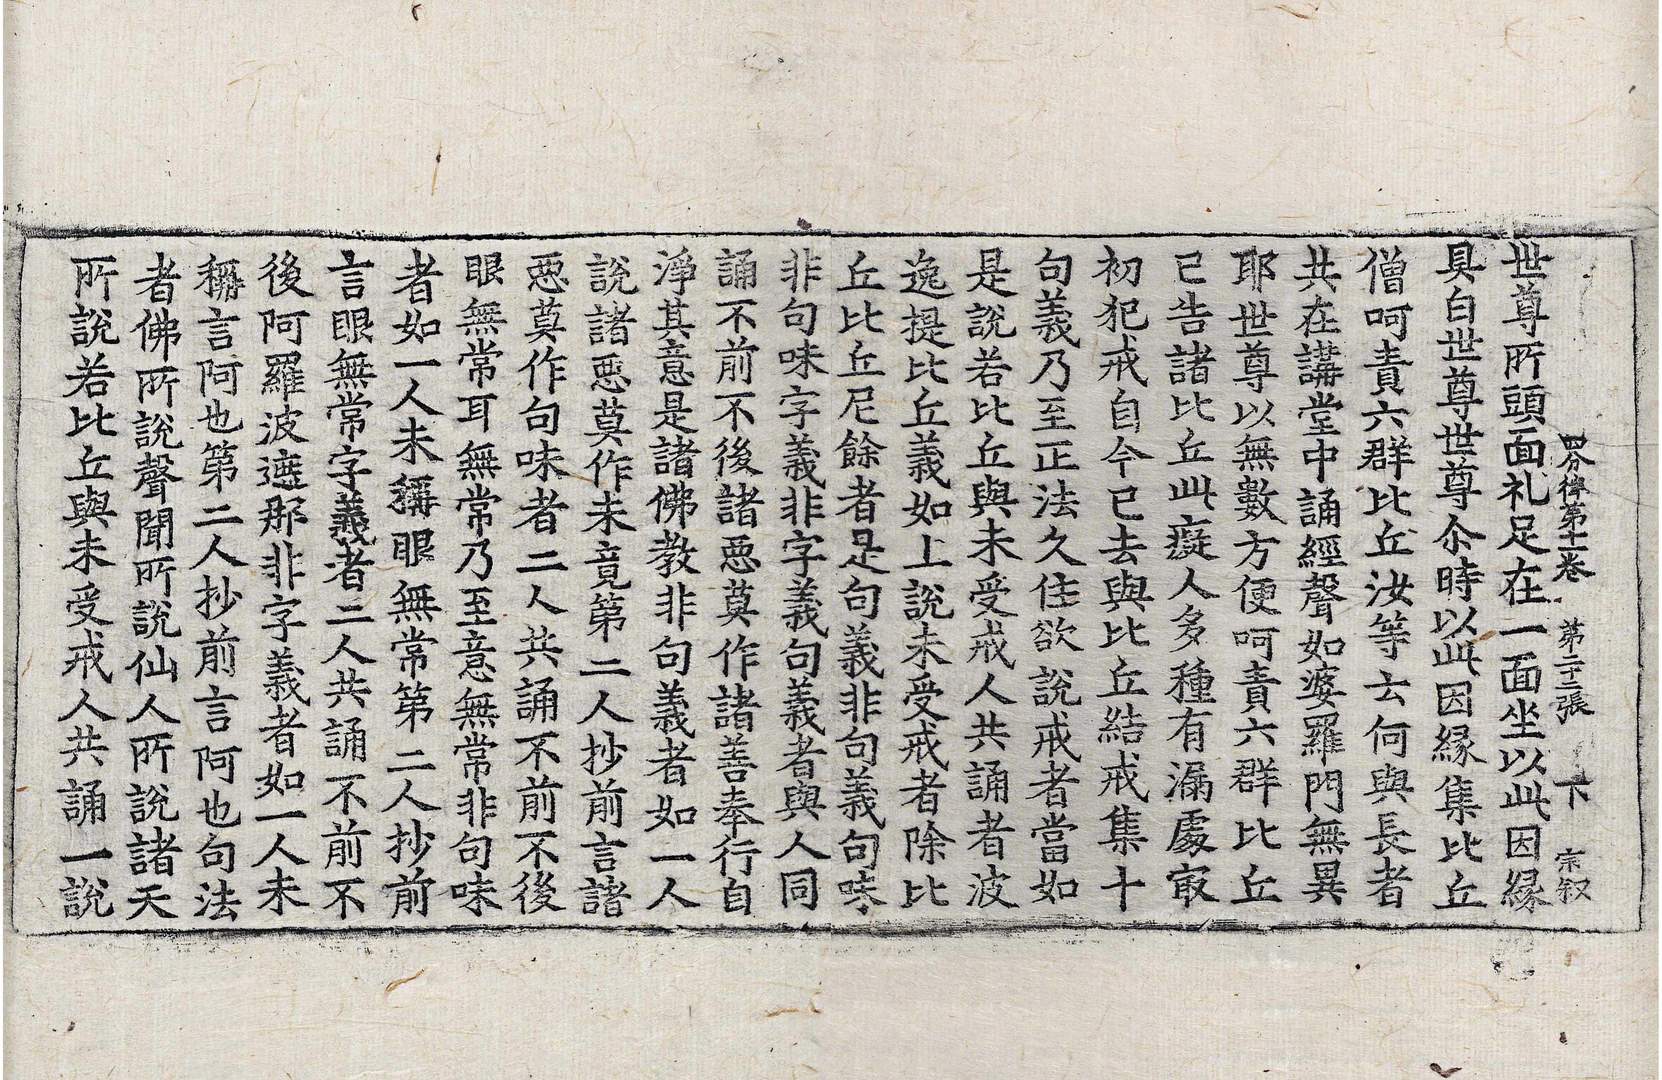 四分律第十一卷 第二十二張 下 宗叙
世尊所頭面礼足在一面坐以此因縁
具白世尊世尊尒時以此因縁集比丘
僧呵責六群比丘汝等云何與長者
共在講堂中誦經聲如婆羅門無異
耶世尊以無數方便呵責六群比丘
已告諸比丘此癡人多種有漏處㝡
初犯戒自今已去與比丘結戒集十
句義乃至正法久住欲說戒者當如
是說若比丘與未受戒人共誦者波
逸提比丘義如上說未受戒者除比
丘比丘尼餘者是句義非句義句味
非句味字義非字義句義者與人同
誦不前不後諸惡莫作諸善奉行自
淨其意是諸佛教非句義者如一人
說諸惡莫作未竟第二人抄前言諸
惡莫作句味者二人共誦不前不後
眼無常耳無常乃至意無常非句味
者如一人未稱眼無常第二人抄前
言眼無常字義者二人共誦不前不
後阿羅波遮那非字義者如一人未
稱言阿也第二人抄前言阿也句法
者佛所說聲聞所說仙人所說諸天
所說若比丘與未受戒人共誦一說